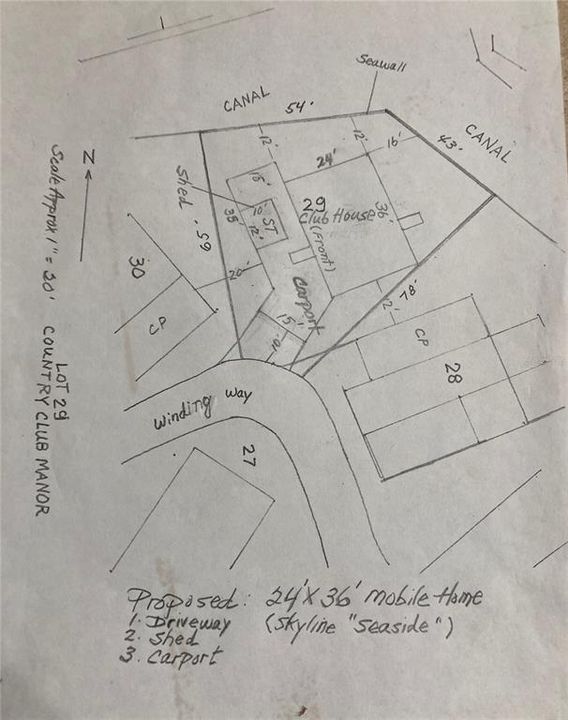 1
Seawall
CANAL
54'
CANAL
43'
12'
12'
16'
24'
Shed
15'
10'
ST
12'
38'
29
Club House
(Front)
36'
59
20'
Carport
15'
10'
78'
2'
N
Scale Approx 1" = 20'
LOT 29
COUNTRY CLUB MANOR
30
CP
CP
28
Winding Way
27
Proposed: 24' X 36' mobile Home
1. Driveway (Skyline "Seaside")
2. Shed
3. Carport